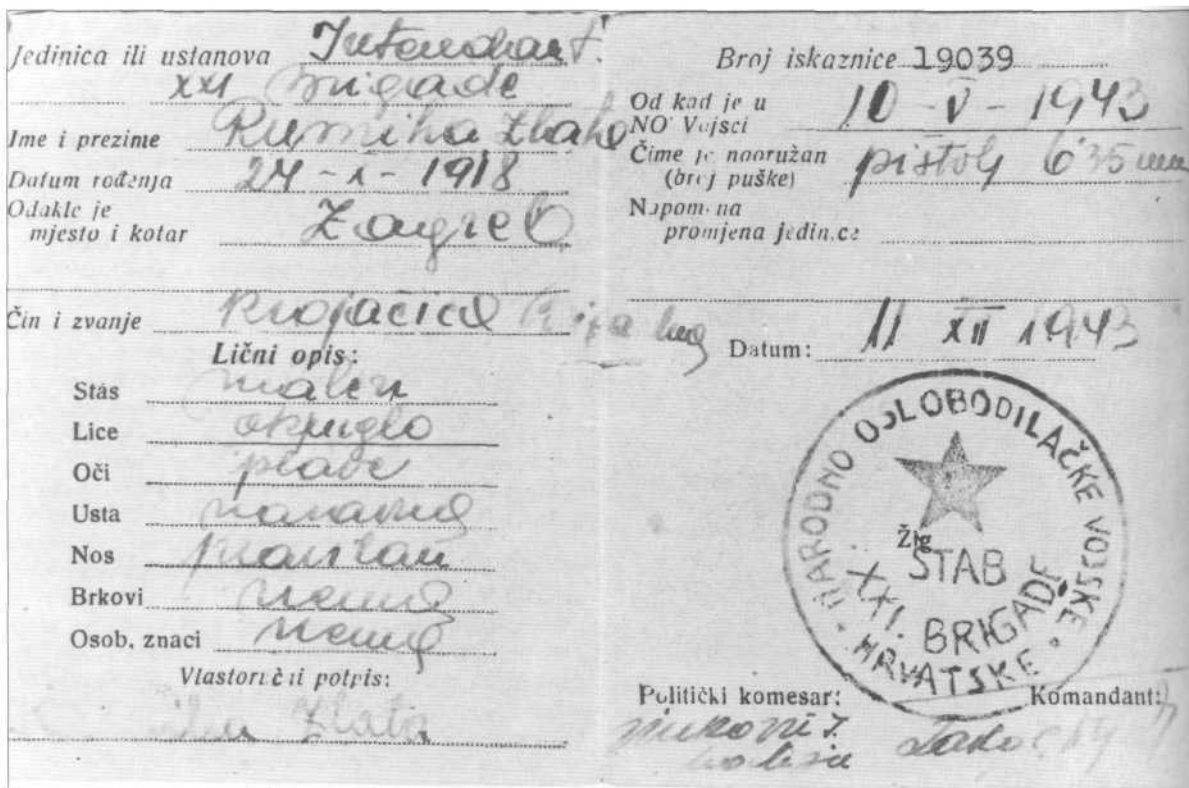 Jedinica ili ustanova
XXI Brigade
Ime i prezime Rumiha Zlata
Datum rođenja 24 - X - 1918
Odakle je
mjesto i kotar Zagreb
Čin i zvanje Krojačica
Lični opis:
Stas malen
Lice okruglo
Oči plave
Usta
Nos pravilan
Brkovi nema
Osob. znaci nema
Vlastoručni potpis:
Zlata
Broj iskaznice 19039
Od kad je u
NO Vojsci 10 - V - 1943
Čime je naoružan pištolj 6'35 mm
(broj puške)
Napomena
promjena jedin.ce
Datum: 11 XII 1943
NARODNO OSLOBODILAČKE VOJSKE
Žig
ŠTAB
XXI. BRIGADE
HRVATSKE
Politički komesar: Komandant: